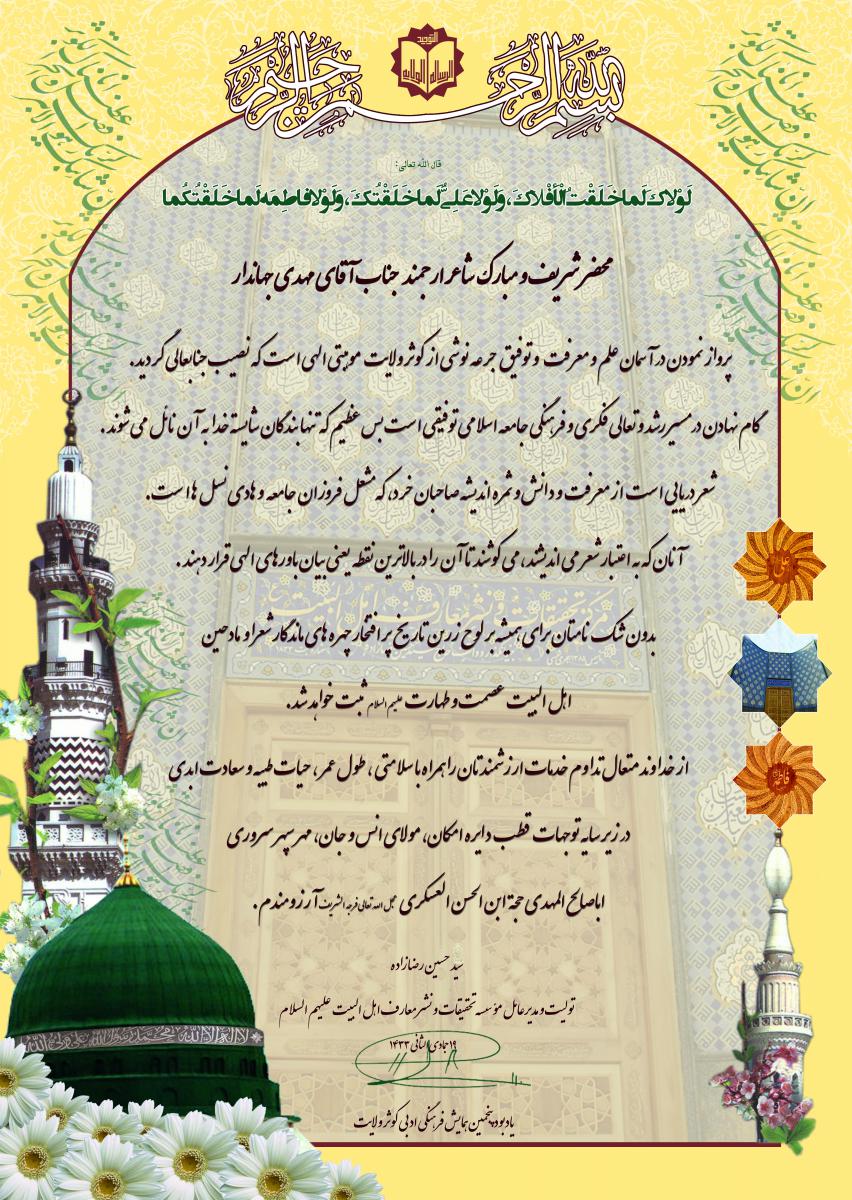 بسم الله الرحمن الرحیم
التوحید
الرسالة الولایة
قال الله تعالی:
لَوْلاكَ لَما خَلَقْتُ الْأَفْلاكَ، وَلَوْلا عَلِيٌّ لَما خَلَقْتُكَ، وَلَوْلا فاطِمَه لَما خَلَقْتُكُما
محضر شریف و مبارک شاعر ارجمند جناب آقای مهدی جهاندار
پرواز نمودن در آسمان علم و معرفت و توفیق جرعه نوشی از کوثر ولایت موهبتی الهی است که نصیب جنابعالی گردید.
گام نهادن در مسیر رشد و تعالی فکری و فرهنگی جامعه اسلامی توفیقی است بس عظیم که تنها بندگان شایسته خدا به آن نائل می شوند.
شعر دریایی است از معرفت و دانش و ثمره اندیشه صاحبان خرد، که مشعل فروزان جامعه و هادی نسل ها است.
آنان که به اعتبار شعر می اندیشند، می کوشند تا آن را در بالاترین نقطه یعنی بیان باورهای الهی قرار دهند.
بدون شک نامتان برای همیشه بر لوح زرین تاریخ پر افتخار چهره های ماندگار شعرا و مادحین
اهل البیت عصمت و طهارت علیهم السلام ثبت خواهد شد.
از خداوند متعال تداوم خدمات ارزشمندتان را همراه با سلامتی، طول عمر، حیات طیبه و سعادت ابدی
در زیر سایه توجهات قطب دایره امکان، مولای انس و جان، مهر سپهر سروری
اباصالح المهدی حجة ابن الحسن العسکری عجل الله تعالی فرجه الشریف آرزومندم.
سید حسین رضازاده
تولیت و مدیر عامل مؤسسه تحقیقات و نشر معارف اهل البیت علیهم السلام
۱۹ جمادی الثانی ۱۴۳۳
یادبود پنجمین همایش فرهنگی ادبی کوثر ولایت
علی
فاطمة